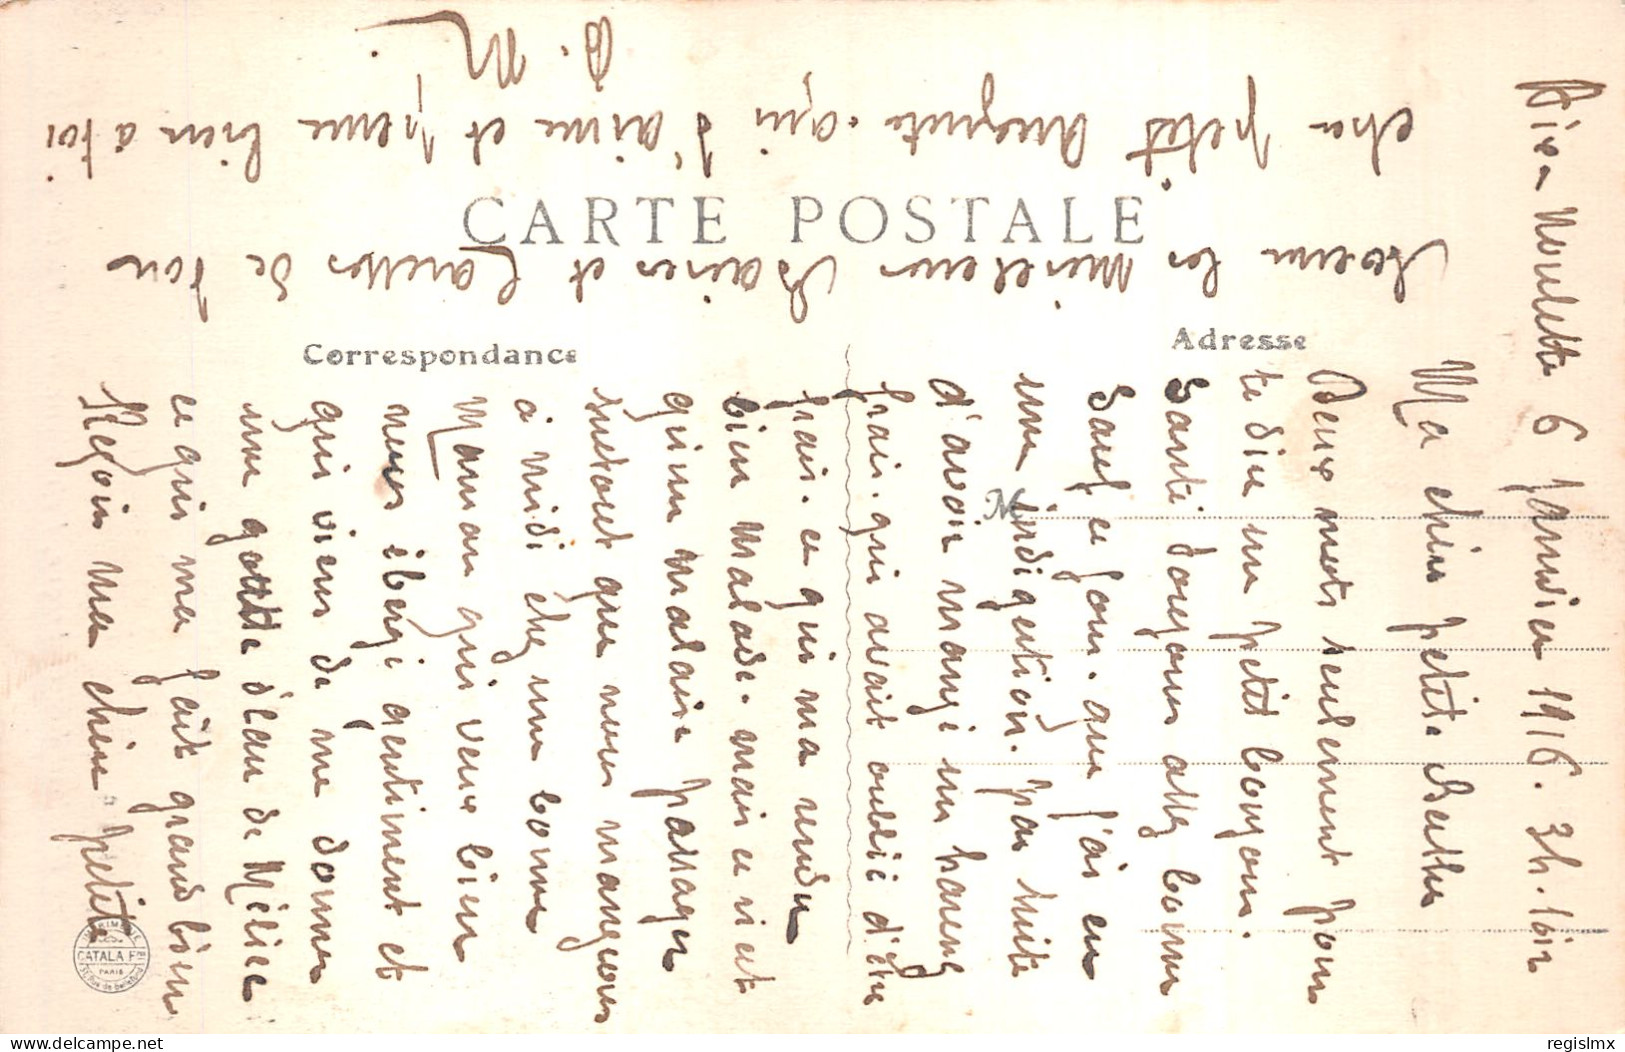 CARTE POSTALE
Correspondance
Adresse
M
6 Janvier 1916. 2h. soir
Ma chère petite Berthe
Deux mots seulement pour
te dire un petit bonjour.
Santé toujours assez bonne
Sauf ce jour. que j'ai eu
une indigestion. par suite
d'avoir mangé un hareng
frai. qui avait oublié d'être
frais. ce qui ma rendu
bien malade. mais ce n'est
qu'un malaise passager
surtout que nous mangeons
à midi chez une bonne
Maman qui veux bien
nous ébergé gentiment et
qui viens de me donner
une goutte d'eau de Mélisse
ce qui me fait grand bien
Reçoin ma chère petite
les meilleurs Baisers et Caresses de ton
cher petit Auguste. qui t'aime et pense bien a toi
IMPRIMERIE
CATALA Frs
PARIS
delcampe.net
regislmx